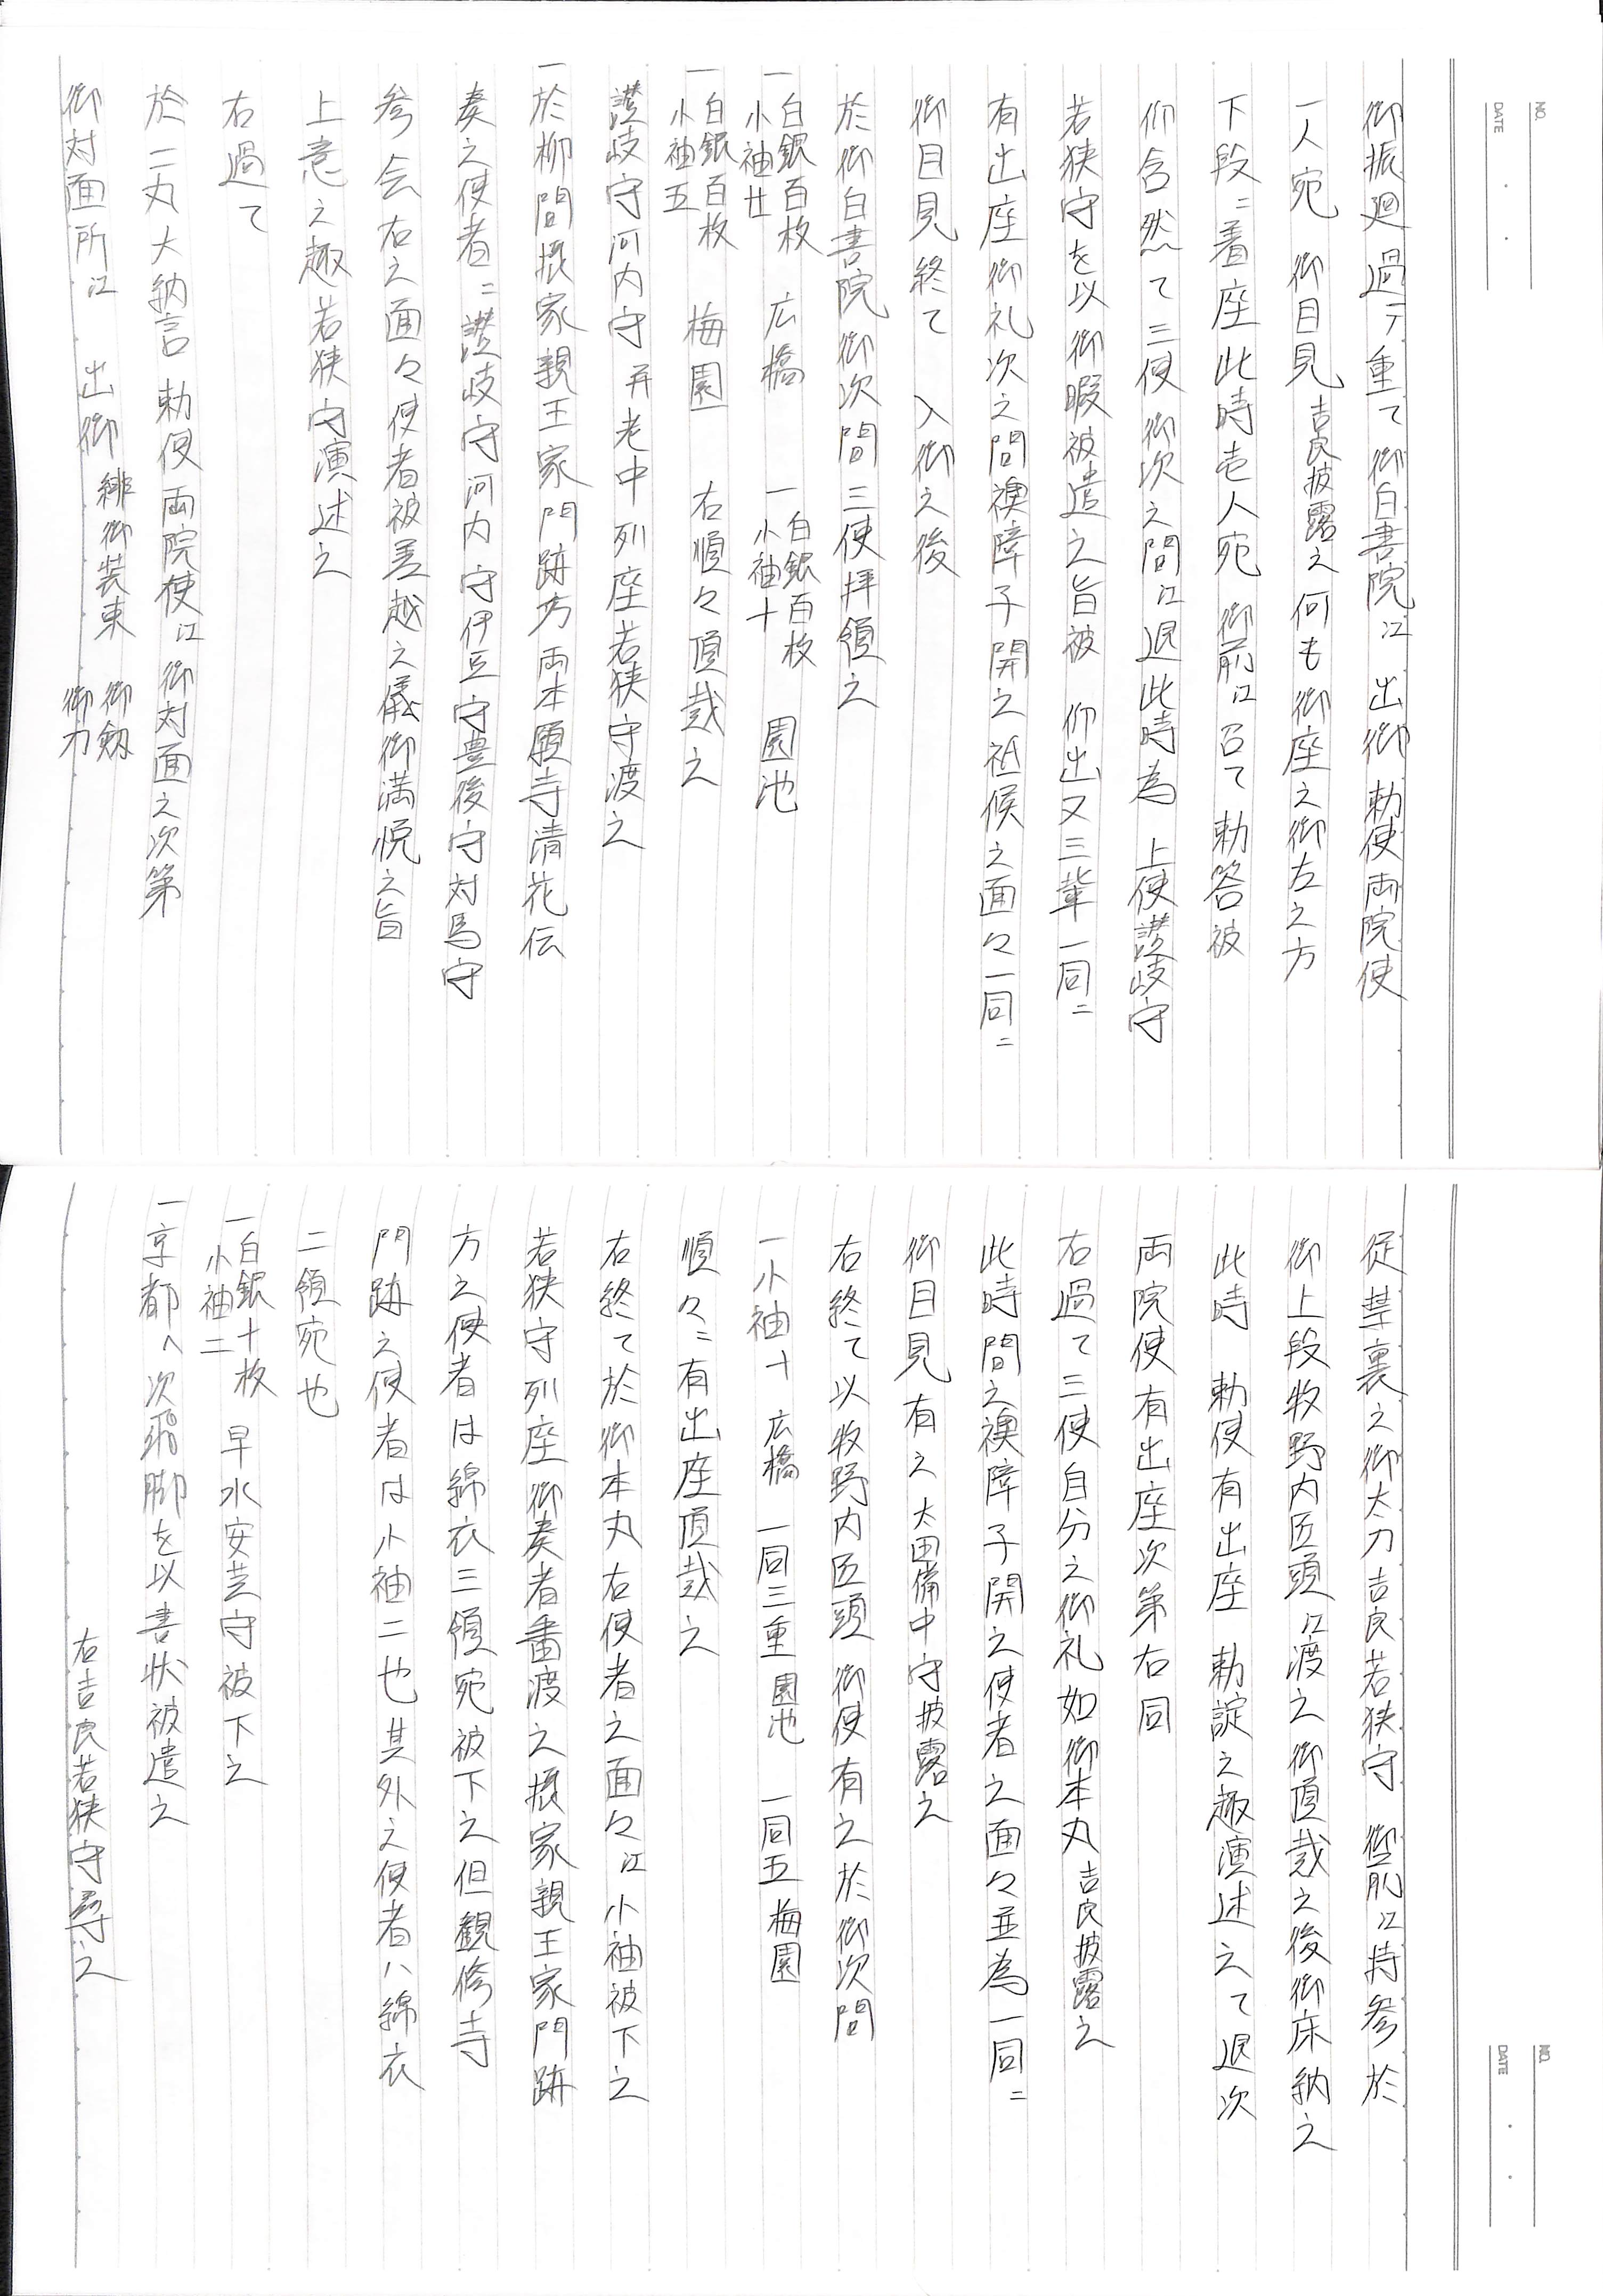 NO.
DATE
御振廻過テ重て御白書院江 出御 勅使両院使
一人宛 御目見吉良披露之何も御座之御左之方
下段ニ着座此時壱人宛 御前江召て 勅答被
仰含然て三使御次之間江退此時為 上使讃岐守
若狭守を以御暇被遣之旨被 仰出又三輩一同ニ
有出座御礼次之間襖障子開之祗候之面々一同ニ
御目見終て 入御之後
於御白書院御次間三使拝領之
一白銀百枚 小袖廿 広橋 一白銀百枚 小袖十 園池
一白銀百枚 小袖五 梅園 右順々頂戴之
讃岐守河内守并老中列座若狭守渡之
一於柳間摂家親王家門跡方両本願寺清花伝
奏之使者ニ讃岐守河内守伊豆守豊後守対馬守
参会右之面々使者被差越之儀御満悦之旨
上意之趣若狭守演述之
右過て
於二丸大納言 勅使両院使江御対面之次第
御対面所江 出御 緋御装束 御劔 御刀
NO.
DATE
従禁裏之御太刀吉良若狭守 御前江持参於
御上段牧野内匠頭江渡之御頂戴之後御床納之
此時 勅使有出座 勅諚之趣演述之て退次
両院使有出座次第右同
右過て三使自分之御礼如御本丸吉良披露之
此時間之襖障子開之使者之面々並為一同ニ
御目見有之太田備中守披露之
右終て以牧野内匠頭御使有之於御次間
一小袖十 広橋 一同三重 園池 一同五 梅園
順々ニ有出座頂戴之
右終て於御本丸右使者之面々江小袖被下之
若狭守列座御奏者番渡之摂家親王家門跡
方之使者は綿衣三領宛被下之但観修寺
門跡之使者は小袖二也其外之使者ハ綿衣
二領宛也
一白銀十枚 小袖二 早水安芸守被下之
一京都へ次飛脚を以書状被遣之
右吉良若狭守尋之